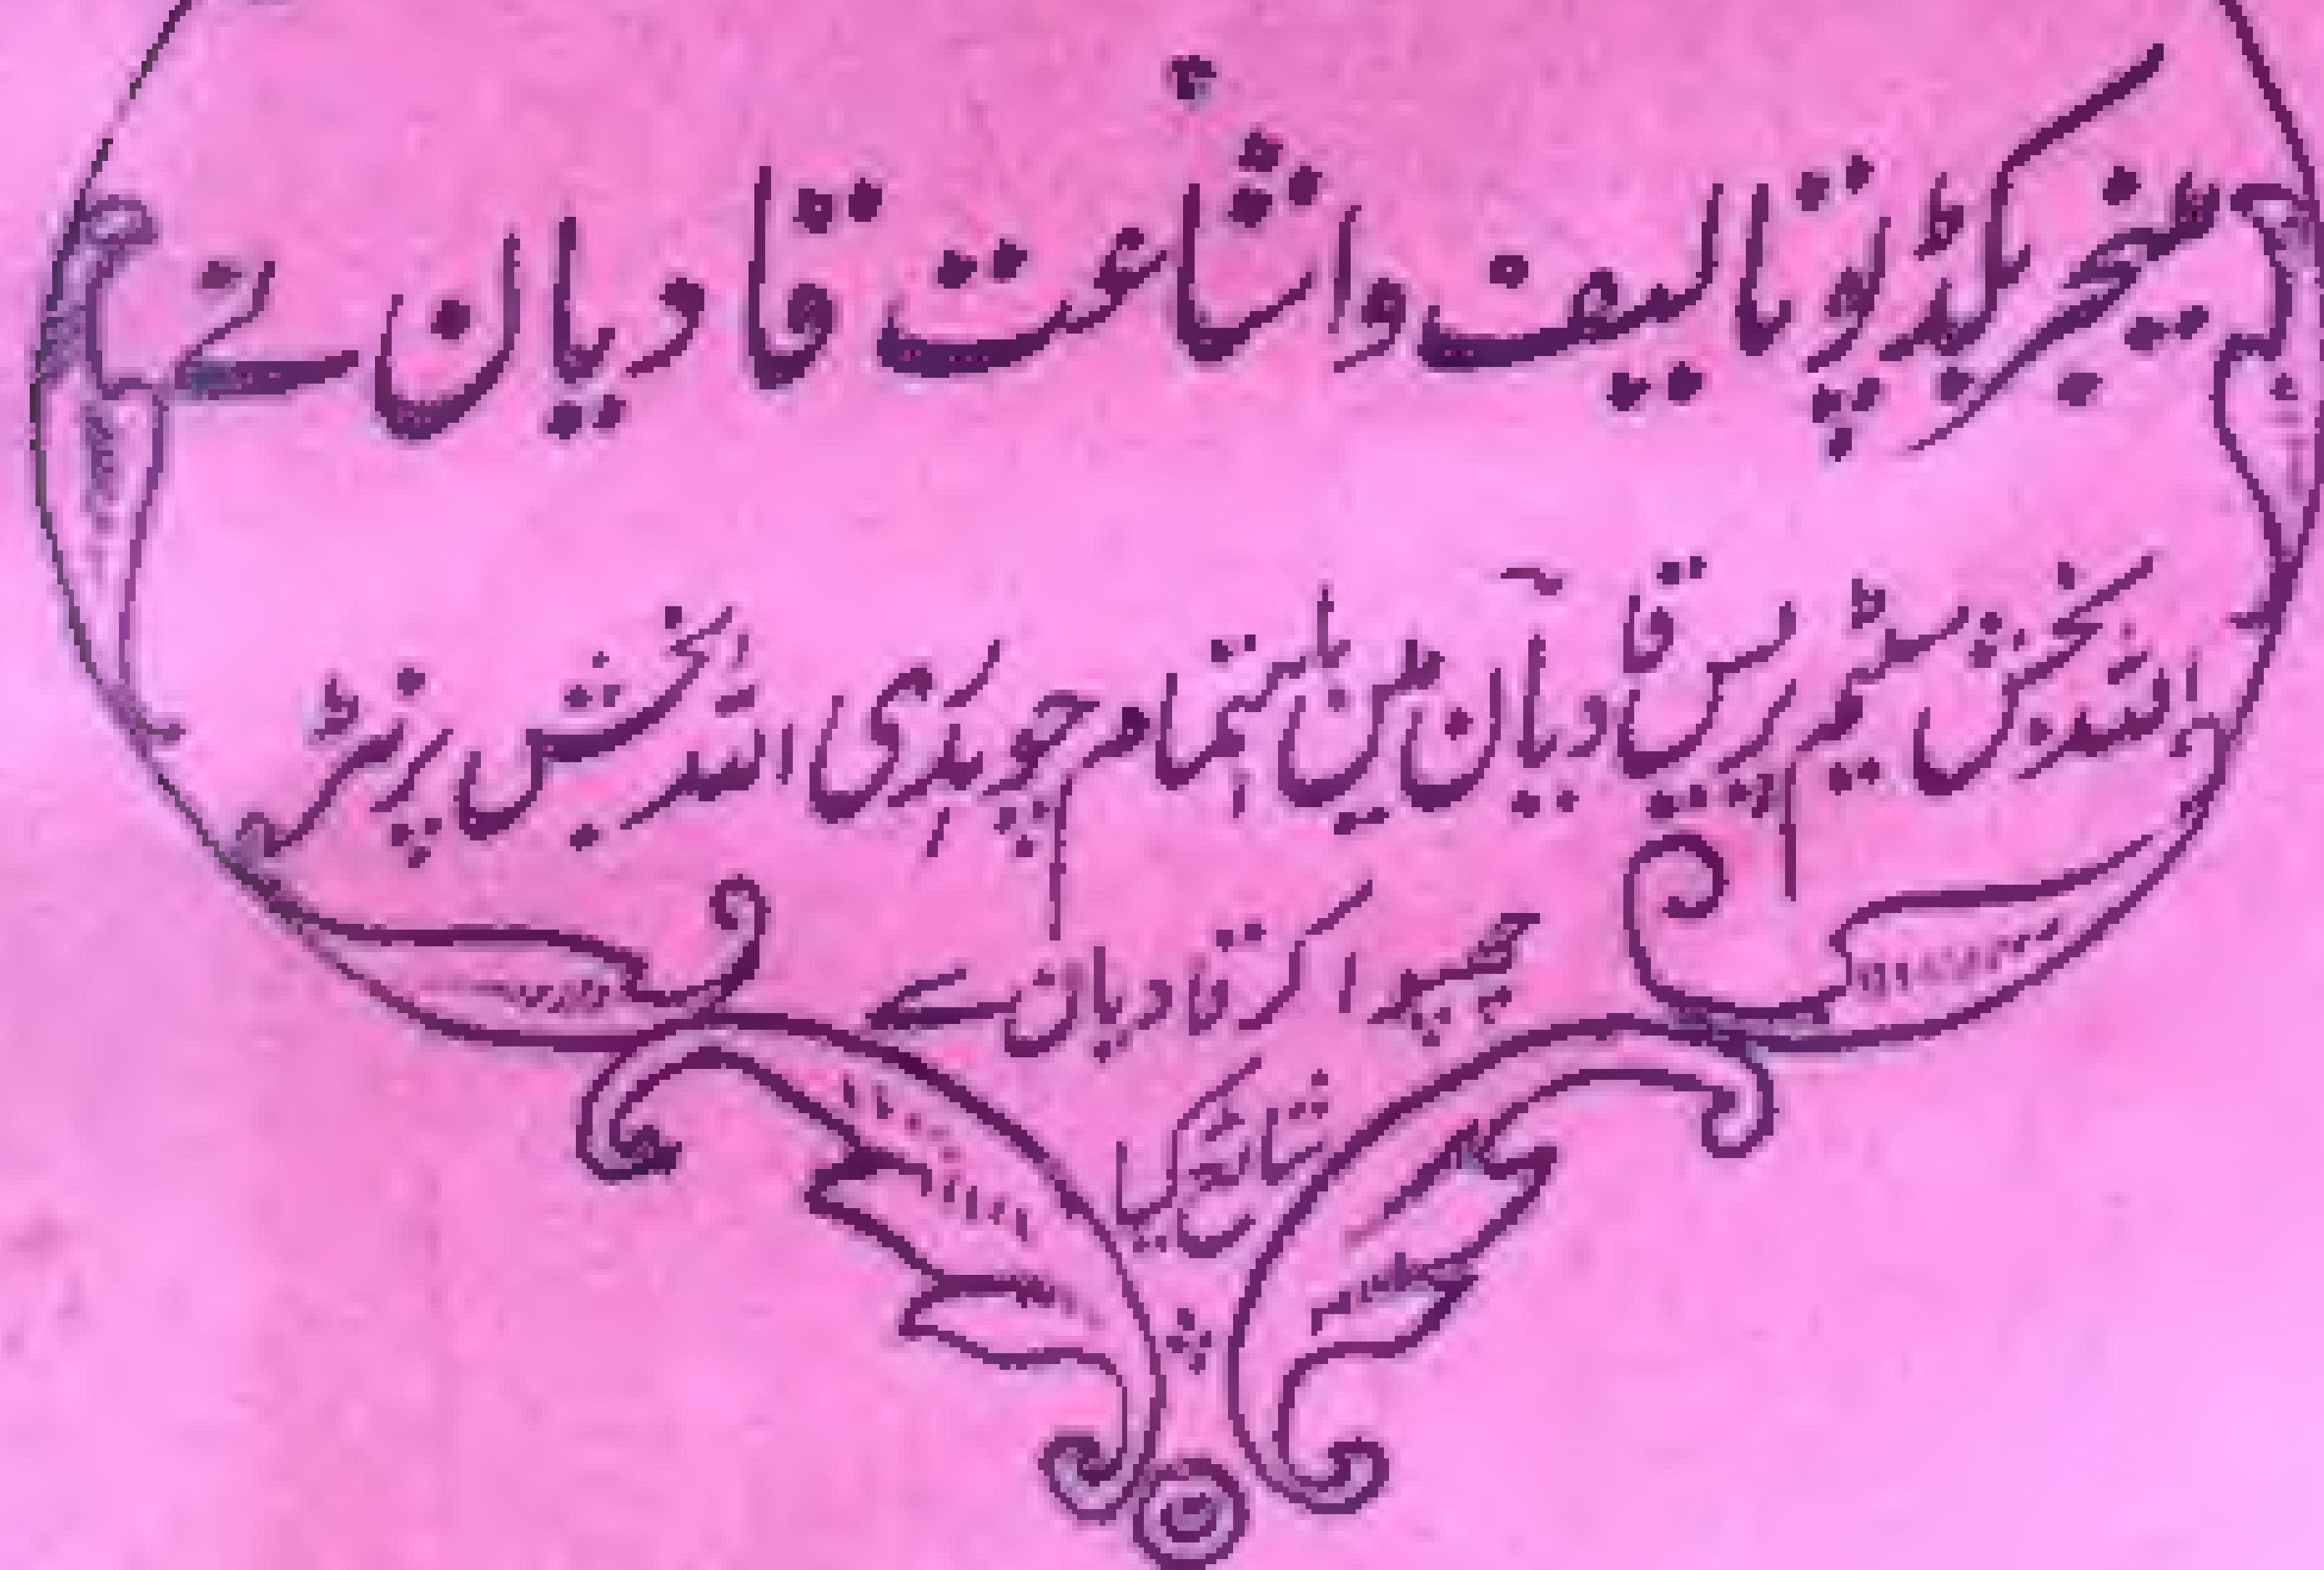 مینیجر بکڈپو تالیف و اشاعت قادیان نے
اللہ بخش سٹیم پریس قادیان میں باہتمام چوہدری اللہ بخش پرنٹر
چھپوا کر قادیان سے
شائع کیا